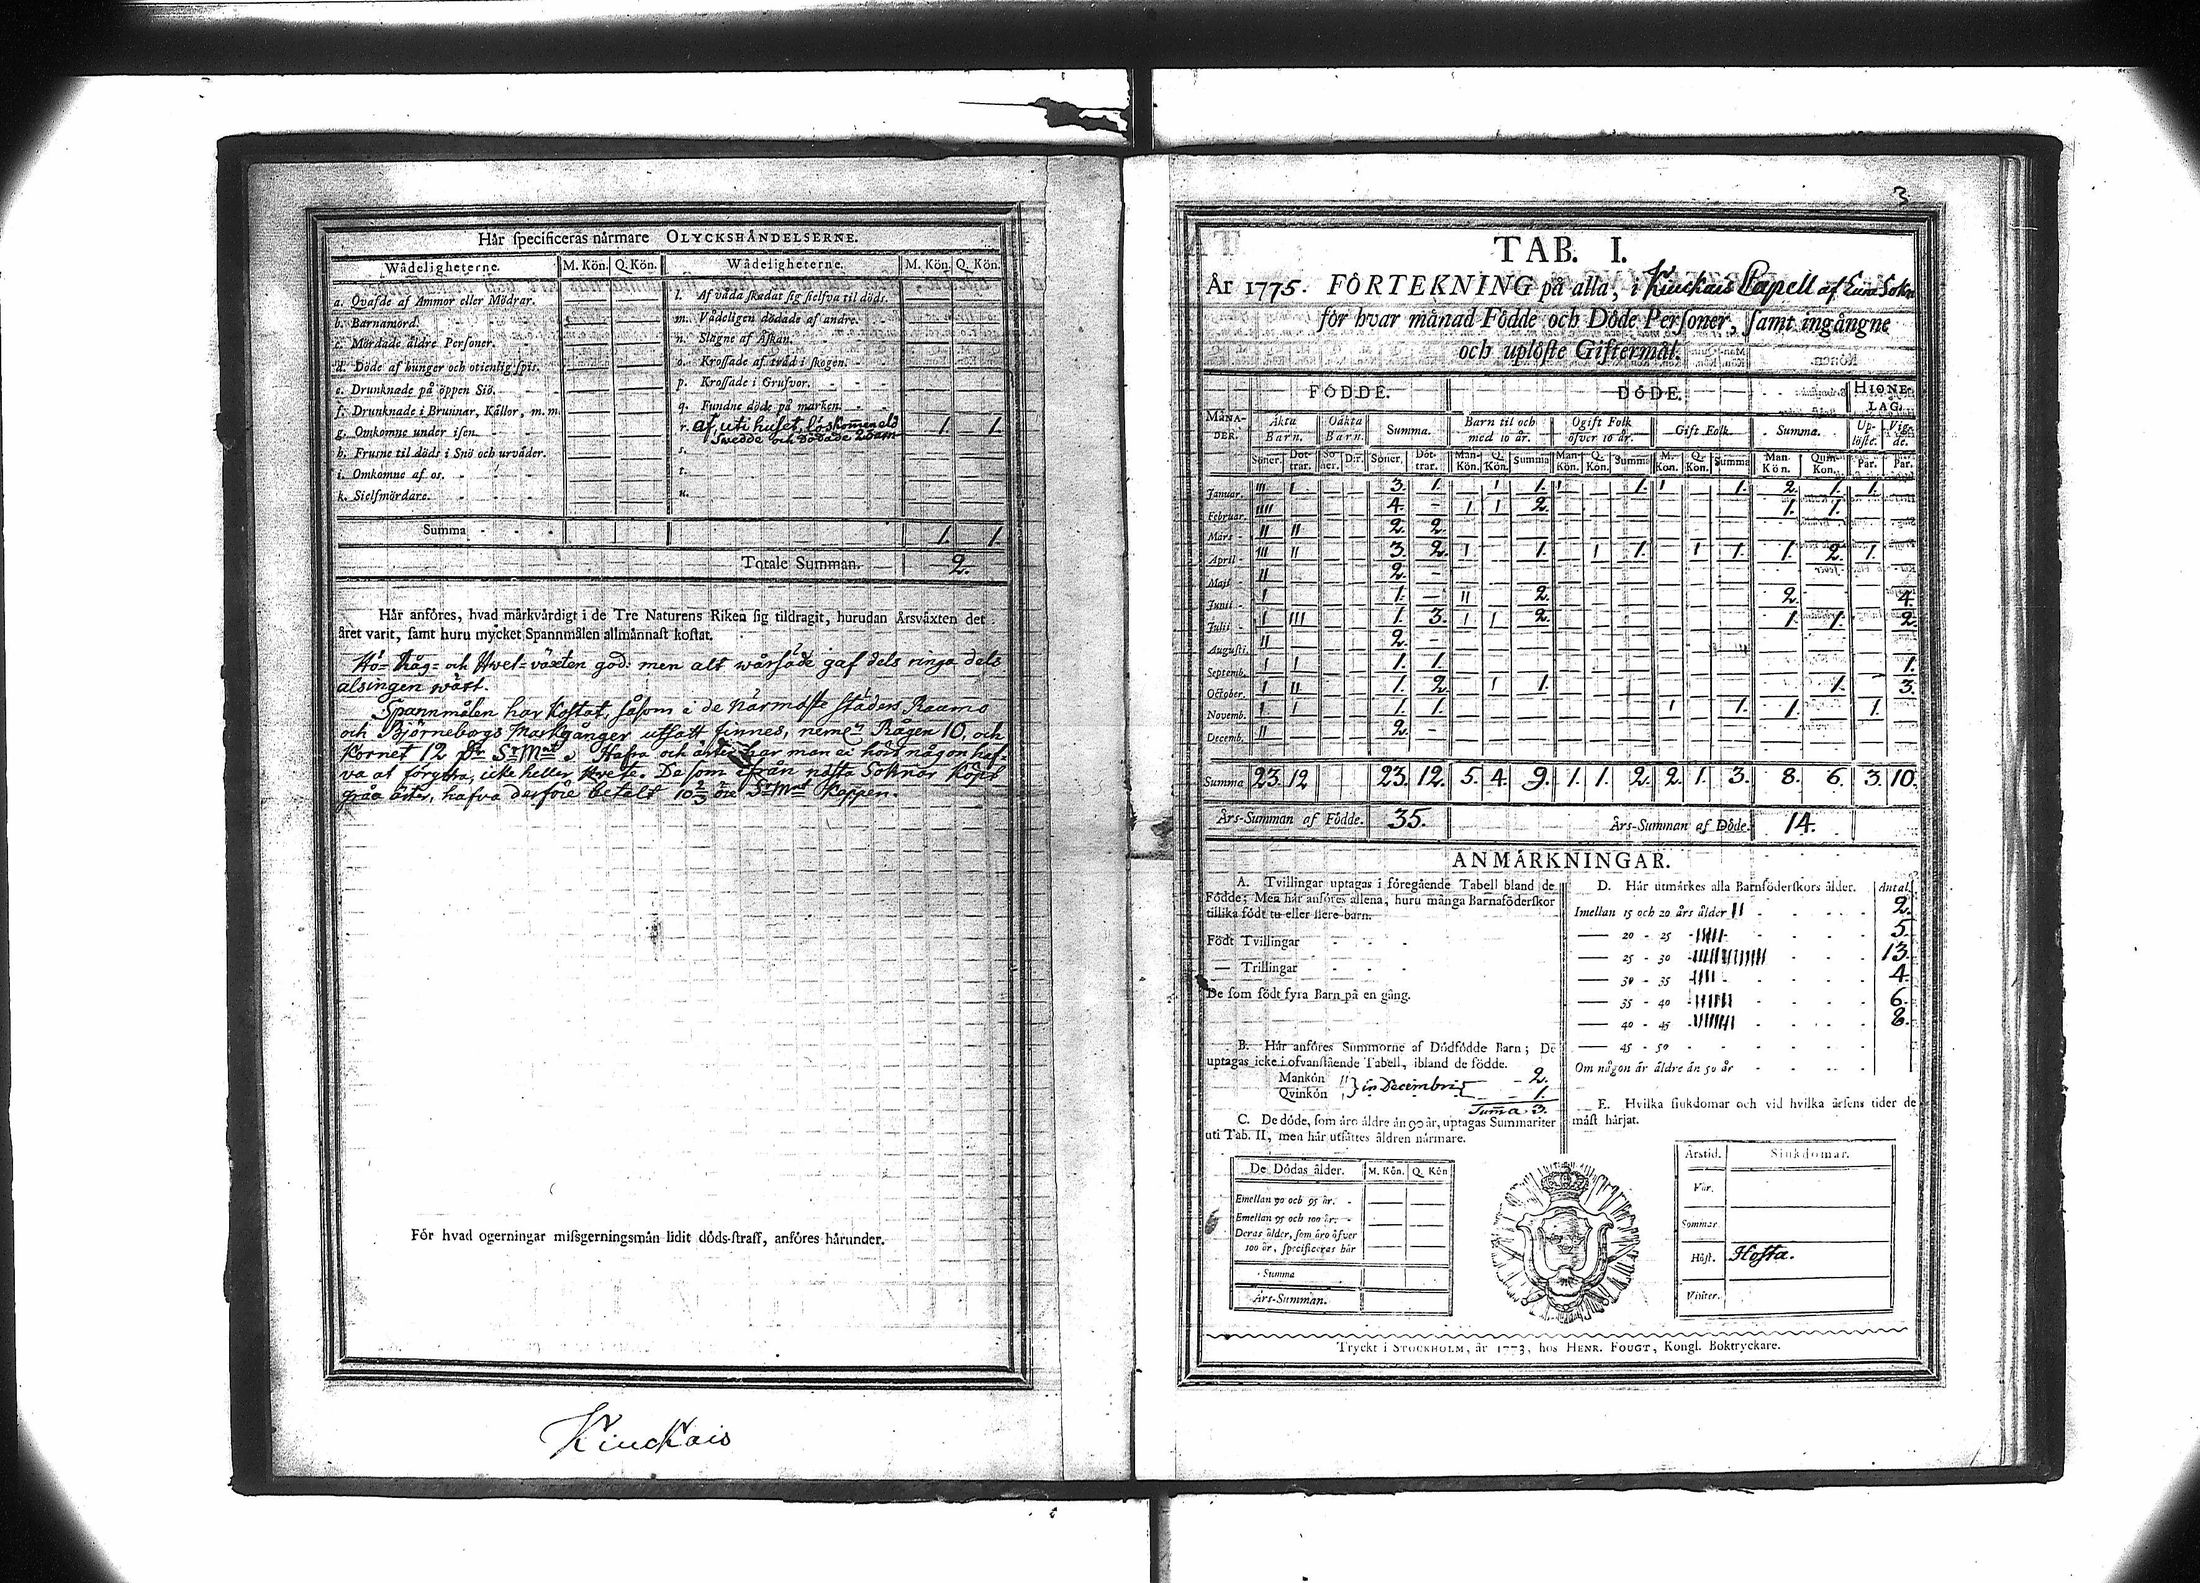 Här specificeras närmare OLYCKSHÄNDELSERNE.
Wådeligheterne. M. Kön. Q. Kön. Wådeligheterne. M. Kön. Q. Kön.
a. Qvafde af Ammor eller Mödrar.
b. Barnamord.
c. Mördade äldre Personer.
d. Döde af hunger och otienlig spis.
e. Drunknade på öppen Siö.
f. Drunknade i Brunnar, Källor, m. m.
g. Omkomne under isen.
h. Frusne til döds i Snö och urväder.
i. Omkomne af os.
k. Sielfmördare.
l. Af våda skadat sig sielfva til döds.
m. Vådeligen dödade af andre.
n. Slagne af Åskan.
o. Krossade af träd i skogen.
p. Krossade i Grufvor.
q. Fundne döde på marken.
r. af, uti huset, löskommen eld 1. 1.
swedde och dödade
s.
t.
u.
Summa 1. 1.
Totale Summan. 2.
Här anföres, hvad märkvärdigt i de Tre Naturens Riken sig tildragit, hurudan Årsväxten det
året varit, samt huru mycket Spannmålen allmännast kostat.
Hö- Råg- och Hwet-växten god: men alt wårsäde gaf dels ringa dels
alsingen wäxt.
Spannmålen har kostat, såsom i de närmaste städers Raumo
och Björneborgs Markgånger utsatt finnes, neml. Rågen 10, och
Kornet 12 S:r M:nt Hafra och ärter har man ei hört någon haf-
va at föryttra, icke heller Hvete. De som ifrån nästa Soknar köpt
gråa ärter, hafva derföre betalt 10 2/3 öre S:r M:nt Kappen.
För hvad ogerningar missgerningsmän lidit döds-straff, anföres härunder.
Kiuckais
3
TAB. I.
År 1775. FÖRTEKNING på alla, i Kiuckais Capell af Eura Sokn
för hvar månad Födde och Döde Personer, samt ingångne
och uplöste Giftermål.
FÖDDE. DÖDE. HIONELAG.
MÅNADER. Äkta Barn. Oäkta Barn. Summa. Barn til och med 10 år. Ogift Folk öfver 10 år. Gift Folk. Summa. Uplöste. Vigde.
Söner. Döttrar. Söner. Dött. Söner. Döttrar. Man-Kön. Q. Kön. Summa Man-Kön. Q. Kön. Summa M. Kön. Q. Kön. Summa Man Kön. Quin Kön. Par. Par.
Januar. III I 3. 1. I 1. I 1. I 1. 2. 1. 1.
Februar. IIII 4. - I I 2. 1. 1.
Mars II II 2. 2.
April III II 3. 2. I 1. I 1. I 1. 1. 2. 1.
Maji II 2. -
Junii I 1. - II 2. 2. 4.
Julii I III 1. 3. I I 2. 1. 1. 2.
Augusti. II 2. -
Septemb. I I 1. 1. 1.
October. I II 1. 2. I 1. 1. 3.
Novemb. I I 1. 1. I 1. 1. 1.
Decemb. II 2. -
Summa 23. 12 23. 12. 5. 4. 9. 1. 1. 2. 2. 1. 3. 8. 6. 3. 10.
Års-Summan af Födde. 35. Års-Summan af Döde. 14.
ANMÄRKNINGAR.
A. Tvillingar uptagas i föregående Tabell bland de
Födde; Men här anföres allena, huru många Barnaföderskor
tillika födt tu eller flere barn.
Födt Tvillingar
— Trillingar
De som födt fyra Barn på en gång.
B. Här anföres Summorne af Dödfödde Barn; De
uptagas icke i ofvanstående Tabell, ibland de födde.
Mankön II } in Decembri 2.
Qvinkön I 1.
Summa. 3.
C. De döde, som äro äldre än 90 år, uptagas Summariter
uti Tab. II, men här utsättes åldren närmare.
De Dödas ålder. M. Kön. Q. Kön
Emellan 90 och 95 år.
Emellan 95 och 100 år.
Deras ålder, som äro öfver
100 år, specificeras här
Summa
Års-Summan.
D. Här utmärkes alla Barnföderskors ålder. Antal.
Imellan 15 och 20 års ålder II 2.
— 20 - 25 - IIIII 5.
— 25 - 30 - IIIIIIIIIIIII 13.
— 30 - 35 - IIII 4
— 35 - 40 - IIIIII 6.
— 40 - 45 - IIIIIIII 8.
— 45 - 50
Om någon är äldre än 50 år
E. Hvilka siukdomar och vid hvilka årsens tider de
mäst härjat.
Årstid. Siukdomar.
Vår.
Sommar
Höst. Hosta.
Vinter.
Tryckt i STOCKHOLM, år 1773, hos HENR. FOUGT, Kongl. Boktryckare.